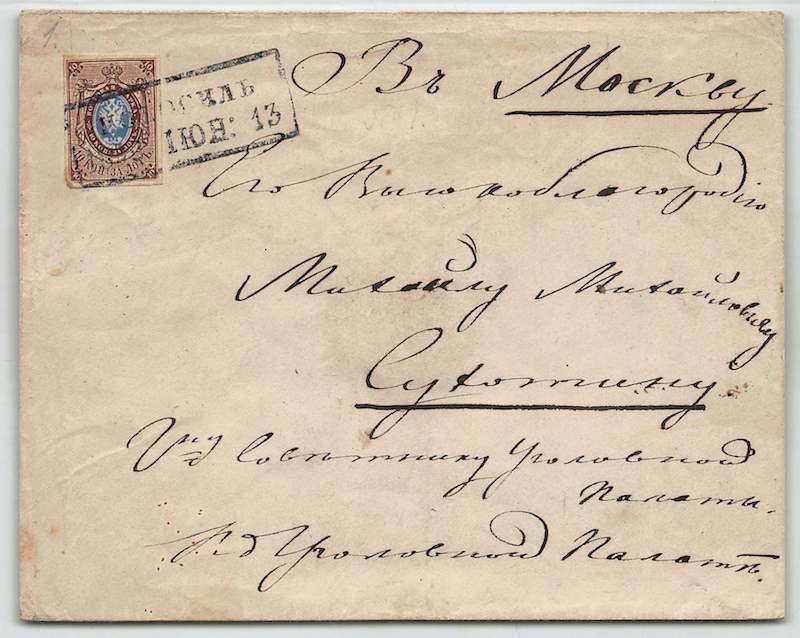 Въ Москву
ОСИЛЬ
ІЮН: 13
Его Высокоблагородію
Михайлу Михайловичу
Сухотину
Гну Совѣтнику Уголовной
Палаты.
Уголовной Палатѣ.